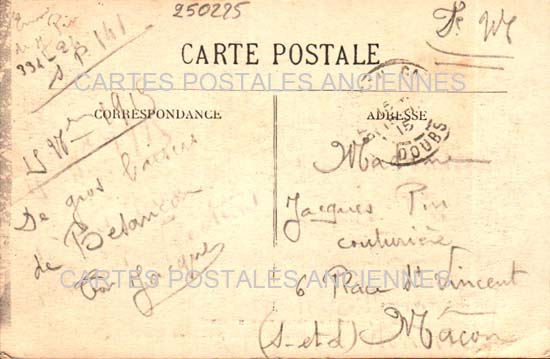 250225
F. M
Pin
S.P. 141
CARTE POSTALE
CARTES POSTALES ANCIENNES
CORRESPONDANCE
ADRESSE
15
DOUBS
De gros baisers
de Besançon
Ton Jacques
Madame
Jacques Pin
couturière
6 Place St Vincent
(S-et-L) Mâcon
CARTES POSTALES ANCIENNES